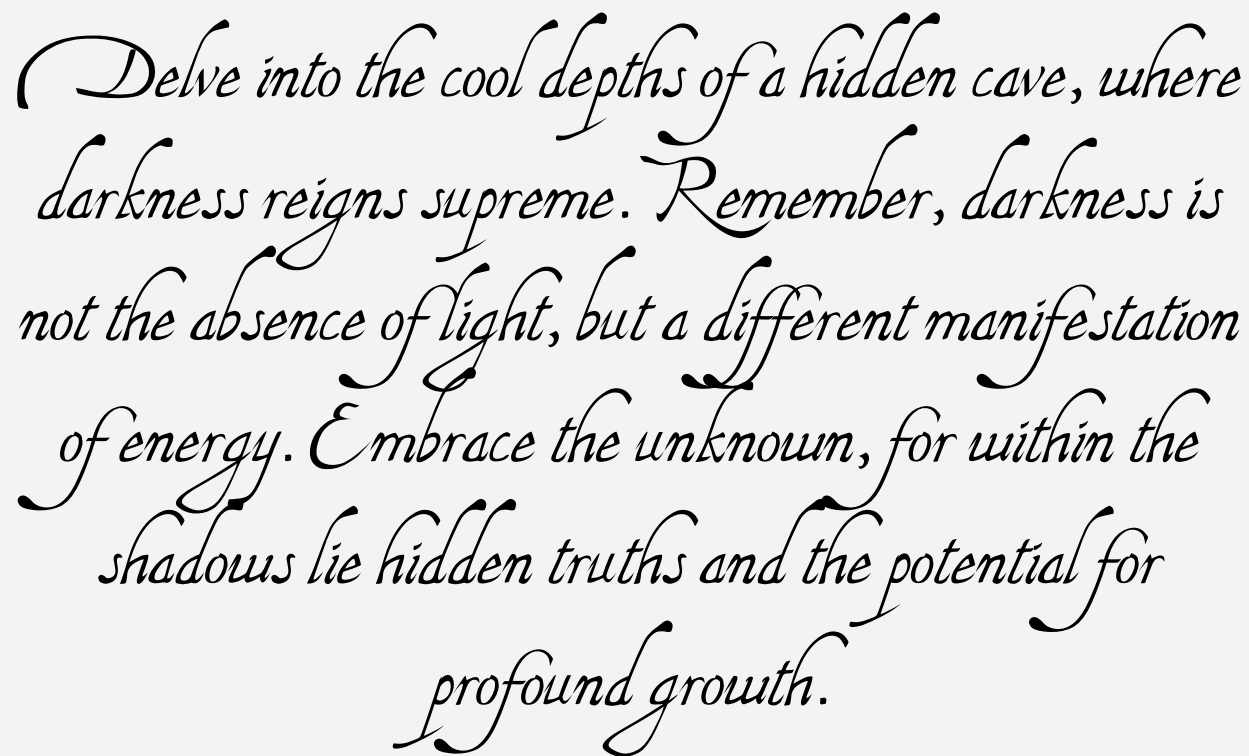 Delve into the cool depths of a hidden cave, where
darkness reigns supreme. Remember, darkness is
not the absence of light, but a different manifestation
of energy. Embrace the unknown, for within the
shadows lie hidden truths and the potential for
profound growth.